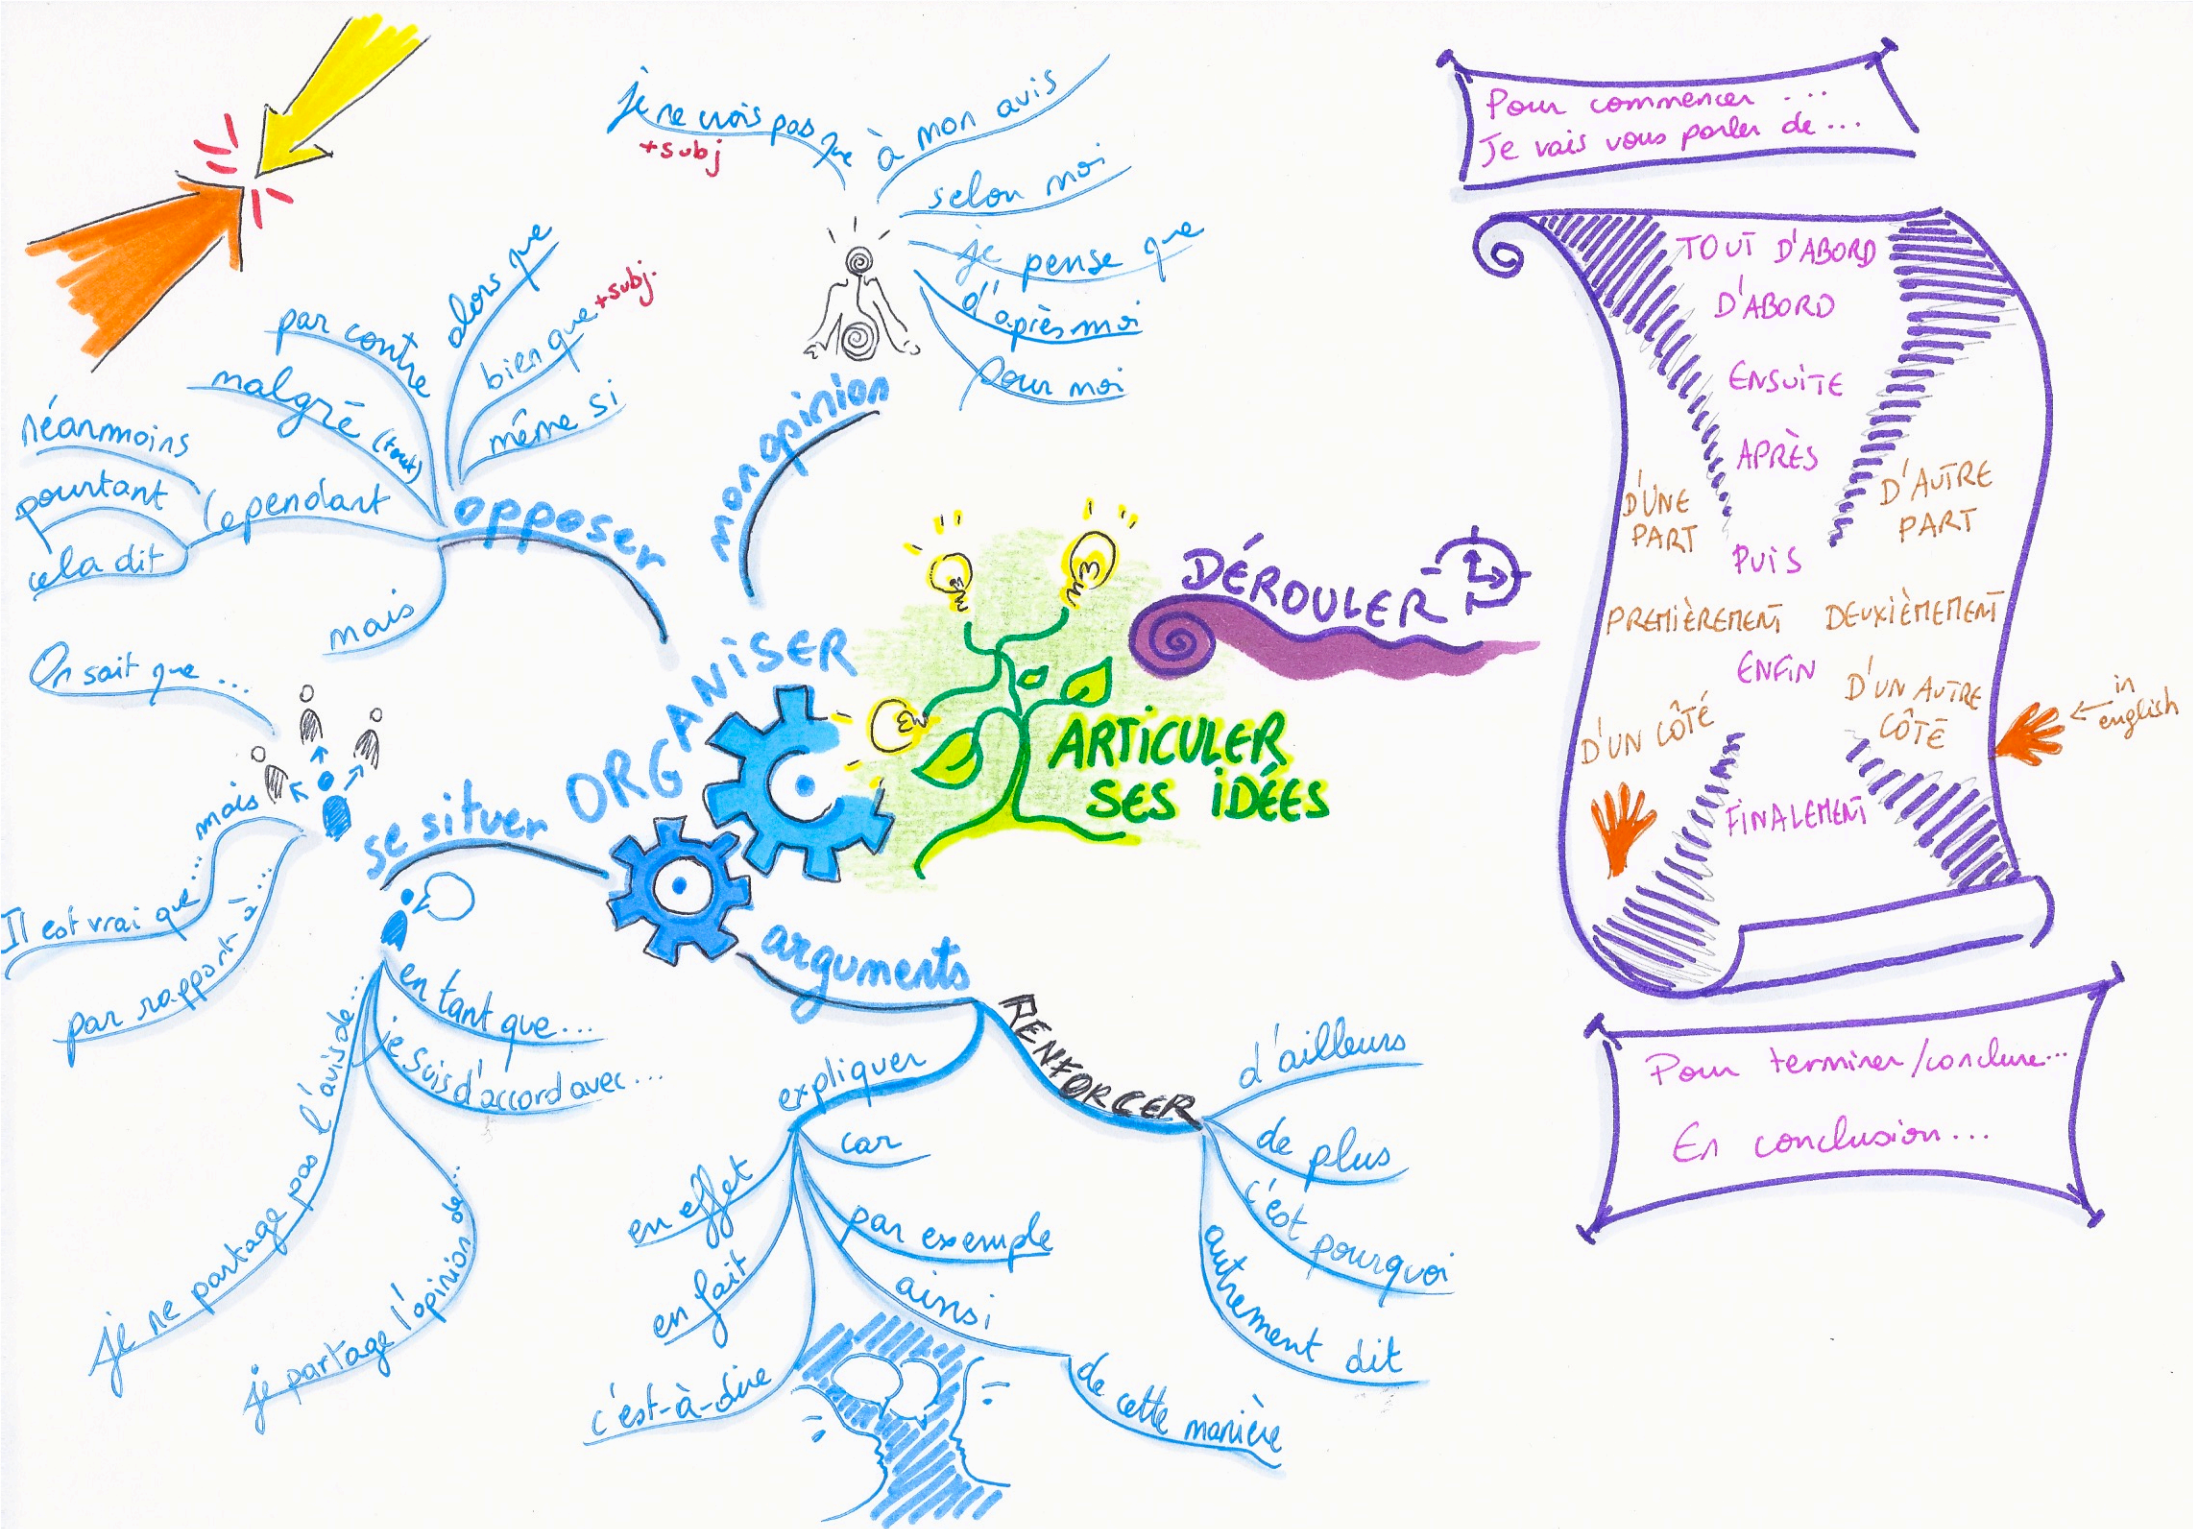 ARTICULER
SES IDÉES
ORGANISER
mon opinion
je ne crois pas que
+subj
à mon avis
selon moi
je pense que
d'après moi
pour moi
opposer
alors que
bien que
+subj.
même si
par contre
malgré (tout)
cependant
néanmoins
pourtant
cela dit
mais
se situer
On sait que ...
Il est vrai que ... mais
par rapport à ...
en tant que...
je suis d'accord avec...
je partage l'opinion de...
je ne partage pas l'avis de...
arguments
expliquer
car
par exemple
ainsi
de cette manière
en effet
en fait
c'est-à-dire
RENFORCER
d'ailleurs
de plus
c'est pourquoi
autrement dit
DÉROULER
Pour commencer ...
Je vais vous parler de...
TOUT D'ABORD
D'ABORD
ENSUITE
APRÈS
D'UNE
PART
D'AUTRE
PART
PUIS
PREMIÈREMENT DEUXIÈMEMENT
ENFIN
D'UN CÔTÉ
D'UN AUTRE
CÔTÉ
in
english
FINALEMENT
Pour terminer/conclure...
En conclusion...